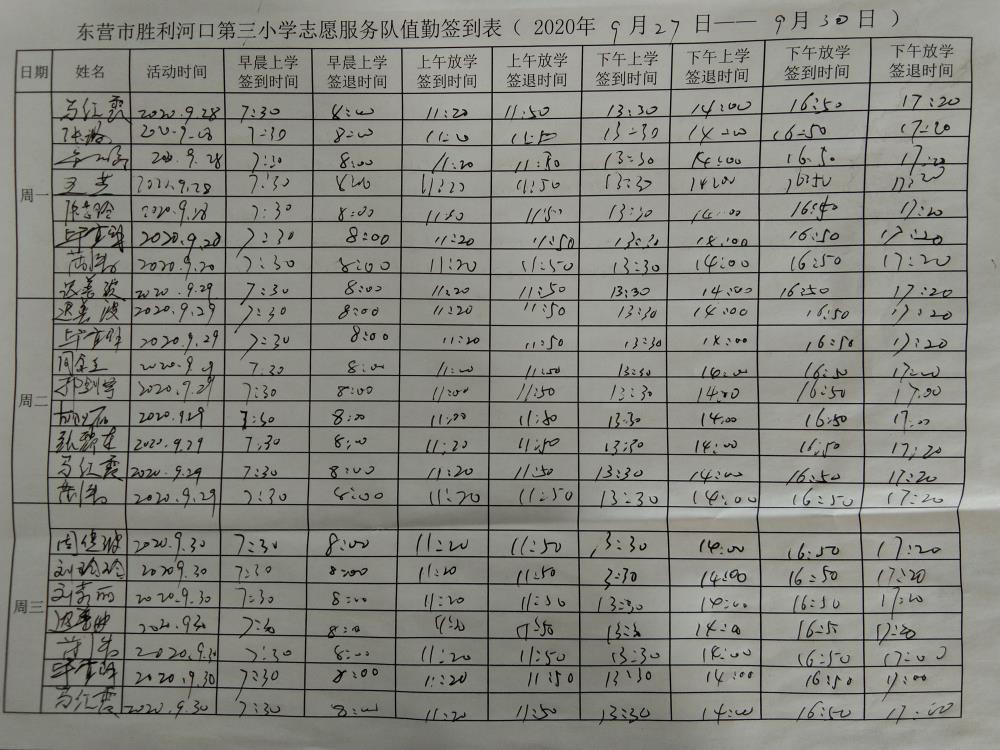 东营市胜利河口第三小学志愿服务队值勤签到表（2020年 9月27日——9月30日）
日期 姓名 活动时间 早晨上学签到时间 早晨上学签退时间 上午放学签到时间 上午放学签退时间 下午上学签到时间 下午上学签退时间 下午放学签到时间 下午放学签退时间
周一 马红霞 2020.9.28 7:30 8:00 11:20 11:50 13:30 14:00 16:50 17:20
2020.9.28 7:30 8:00 11:20 11:50 13:30 14:00 16:50 17:20
2020.9.28 7:30 8:00 11:20 11:50 13:30 14:00 16:50 17:20
2020.9.28 7:30 8:00 11:20 11:50 13:30 14:00 16:50 17:20
2020.9.28 7:30 8:00 11:20 11:50 13:30 14:00 16:50 17:20
2020.9.28 7:30 8:00 11:20 11:50 13:30 14:00 16:50 17:20
2020.9.20 7:30 8:00 11:20 11:50 13:30 14:00 16:50 17:20
迟善波 2020.9.29 7:30 8:00 11:20 11:50 13:30 14:00 16:50 17:20
周二 迟善波 2020.9.29 7:30 8:00 11:20 11:50 13:30 14:00 16:50 17:20
2020.9.29 7:30 8:00 11:20 11:50 13:30 14:00 16:50 17:20
2020.9.29 7:30 8:00 11:00 11:50 13:30 14:00 16:50 17:00
2020.9.29 7:30 8:00 11:00 11:50 13:30 14:00 16:50 17:00
2020.9.29 7:30 8:00 11:00 11:50 13:30 14:00 16:50 17:00
2020.9.29 7:30 8:00 11:20 11:50 13:30 14:00 16:50 17:20
马红霞 2020.9.29 7:30 8:00 11:20 11:50 13:30 14:00 16:50 17:20
2020.9.29 7:30 8:00 11:20 11:50 13:30 14:00 16:50 17:20
周三 2020.9.30 7:30 8:00 11:20 11:50 13:30 14:00 16:50 17:20
刘玲玲 2020.9.30 7:30 8:00 11:20 11:50 3:30 14:00 16:50 17:20
刘素丽 2020.9.30 7:30 8:00 11:20 11:50 13:30 14:00 16:50 17:20
2020.9.30 7:30 8:00 11:20 11:50 13:30 14:00 16:50 17:20
2020.9.30 7:30 8:00 11:20 11:50 13:30 14:00 16:50 17:00
2020.9.30 7:30 8:00 11:20 11:50 13:30 14:00 16:50 17:00
马红霞 2020.9.30 7:30 8:00 11:20 11:50 13:30 14:00 16:50 17:00